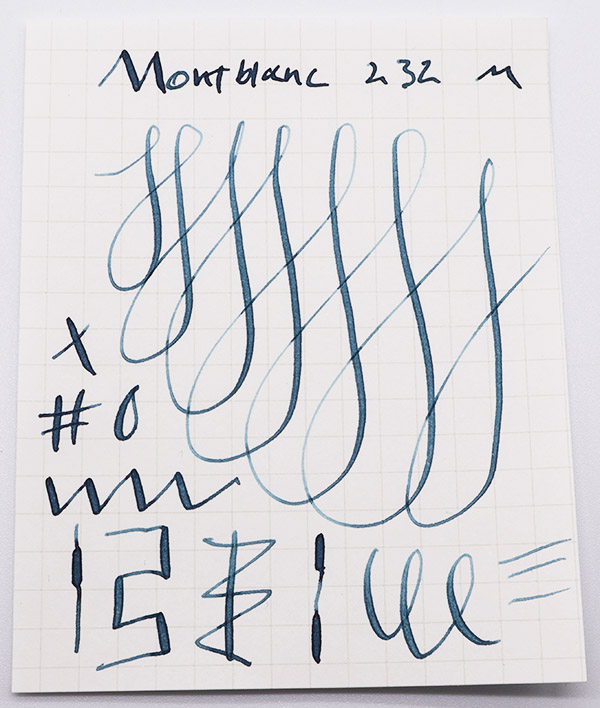 Montblanc 232 M
x
# 0